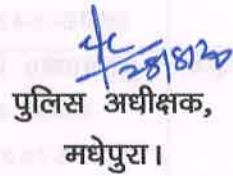 28/8/20
पुलिस अधीक्षक,
मधेपुरा।